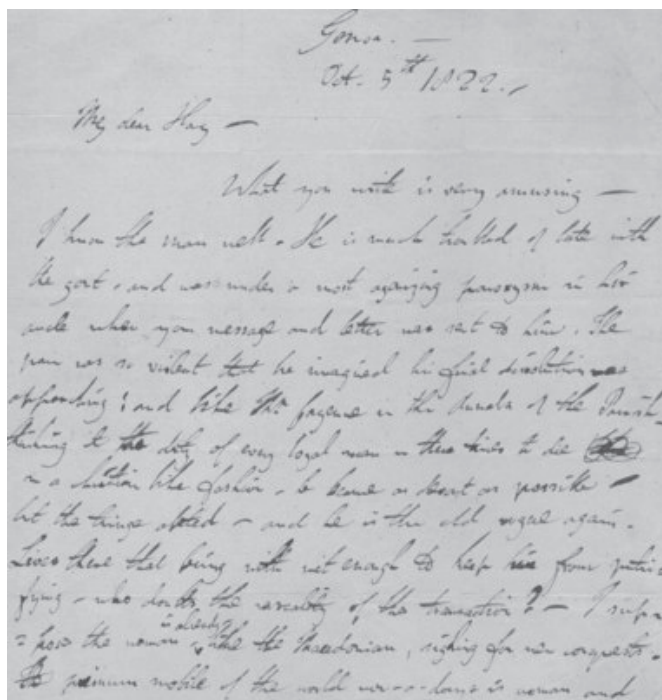 Genoa. —
Oct. 5th 1822.
My dear Hay —
What you write is very amusing —
I know the man well. He is much troubled of late with
the gout, and was under a most agonizing paroxysm in his
ancle when you message and letter was sent to him. The
pain was so violent that he imagined his final dissolution was
approaching; and like in the Annals of the Parish
thinking it the duty of every loyal man in these times to die
in a christian like fashion, became as decent as possible —
but the things abated — and he is the old rogue again.
Lives there that being with wit enough to keep him from putri-
fying — who doubts the rascality of the transaction? — I sup
= pose the woman is already like the Macedonian, sighing for new conquests.
The primum mobile of the world now-a-days is woman and